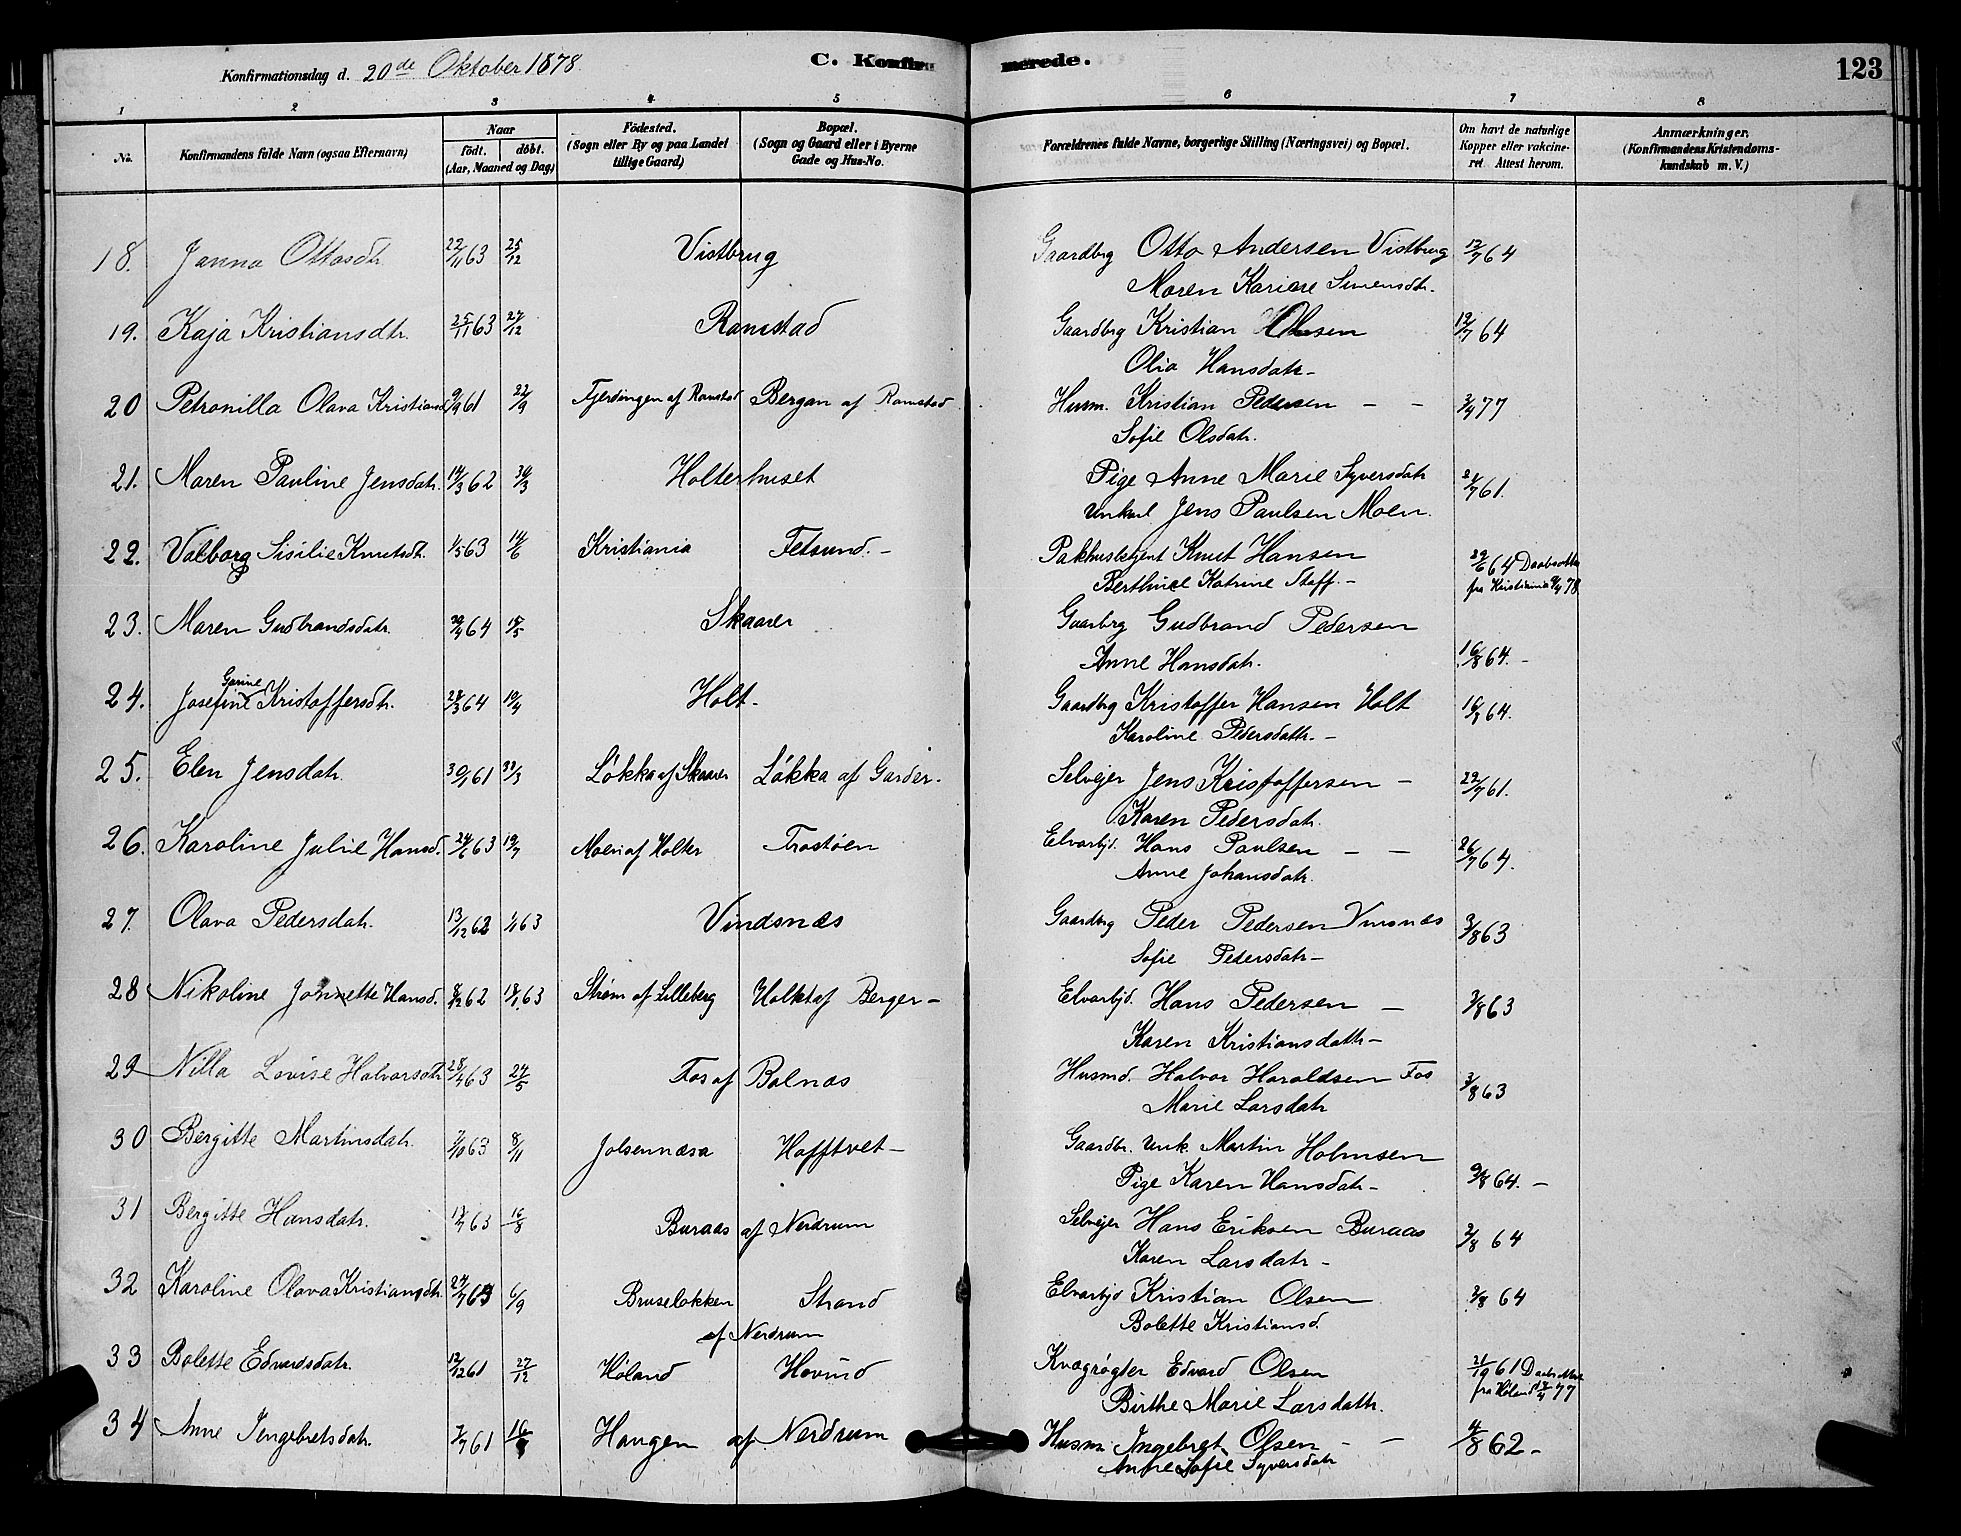 Konfirmationsdag d. 20de Oktober 1878. C. Konfirmerede. 123
1 2 3 4 5 6 7 8
No. Konfirmandens fulde Navn (ogsaa Efternavn) Naar født. døbt. (Aar, Maaned og Dag) Fødested. (Sogn eller By og paa Landet tillige Gaard) Bopæl. (Sogn og Gaard eller i Byerne Gade og Hus-No. Forældrenes fulde Navne, borgerlige Stilling (Næringsvei) og Bopæl. Om havt de naturlige Kopper eller vakcineret. Attest herom. Anmærkninger. (Konfirmandens Kristendomskundskab m. V.)
18. Janna Ottosdtr 22/11 63 25/12 Vistbrug Gaardbrg Otto Andersen Vistbrug 12/7 64
Maren Karine Simensdtr.
19. Kaja Kristiansdtr. 25/11 63 27/12 Ramstad Gaardbrg Kristian Olsen 12/7 64
Olia Hansdatr
20 Petronilla Olava Kristiansd 9/9 61 22/9 Fjerdingen af Ramstad Bergan af Ramstad Husm. Kristian Pedersen – – 3/4 77
Sofie Olsdatr.
21. Maren Pauline Jensdatr. 14/3 62 30/3 Holterhuset Pige Anne Marie Syversdatr 61.
Unkarl Jens Paulsen Moen.
22. Valborg Sisilie Knutsdt. 1/5 63 14/6 Kristiania Fetsund. – Pakhusbetjent Knut Hansen 29/6 64 Daabsattest
Berthine Katrine Staff. – fra Kristiania 78
23. Maren Gudbrandsdatr. 64 15/5 Skaarer Gaarbrg Gudbrand Pedersen
Anne Hansdatr. 16/8 64. –
24. Josefine Garine Kristoffersdtr. 64 10/4 Holt. Gaardbrg Kristoffer Hansen Holt 64.
Karoline Pedersdattr. –
25. Elen Jensdatr. 61 Løkka af Skaarer Løkka af Garder. Selvejer Jens Kristoffersen – 22/7 61.
Karen Pedersdatr.
26. Karoline Julie Hansd. 63 19/7 Moen af Holter Trostøen Elvarbjd. Hans Paulsen – – 26/7 64.
Anne Johansdatr.
27. Olava Pedersdatr. 13/12 62 1/1 63 Vindsnæs Gaardbrg Peder Pedersen Vinsnæs 3/8 63
Sofie Pedersdatr –
28 Nikoline Jonnette Hansd. 8/12 62 18/1 63 Strøm af Lilleberg Holkt af Berger – Elvarbjd. Hans Pedersen – 3/8 63
Karen Kristiansdattr –
29 Nilla Lovise Halvorsdtr 28/4 63 24/5 Fos af Balnæs Husmd. Halvor Haraldsen Fos 3/8 63
Marie Larsdatr
30 Bergitte Martinsdatr. 7/10 63 8/11 Jølsennæsa Hofftvet – Gaardbr. Unk. Martin Holmsen
Pige Karen Hansdatr – 9/8 64. –
31 Bergitte Hansdatr. 63 16/8 Buraas af Nerdrum Selvejer Hans Eriksen Buraas 2/8 64
Karen Larsdatr –
32 Karoline Olava Kristiansdtr. 63 6/9 Bruseløkken Strand Elvarbjd Kristian Olsen 64
af Nerdrum Bolette Kristiansd.
33 Bolette Edvardsdatr. 12/12 61 27/12 Høland Hovind Kvægrøgter Edvard Olsen 61 Daabsattest
Birthe Marie Larsdattr. fra Høland 77
34 Anne Ingebretsdatr. 7/7 61 Haugen af Nerdrum Husm. Ingebret Olsen – – 4/8 62 –
Anne Sofie Syversdatr